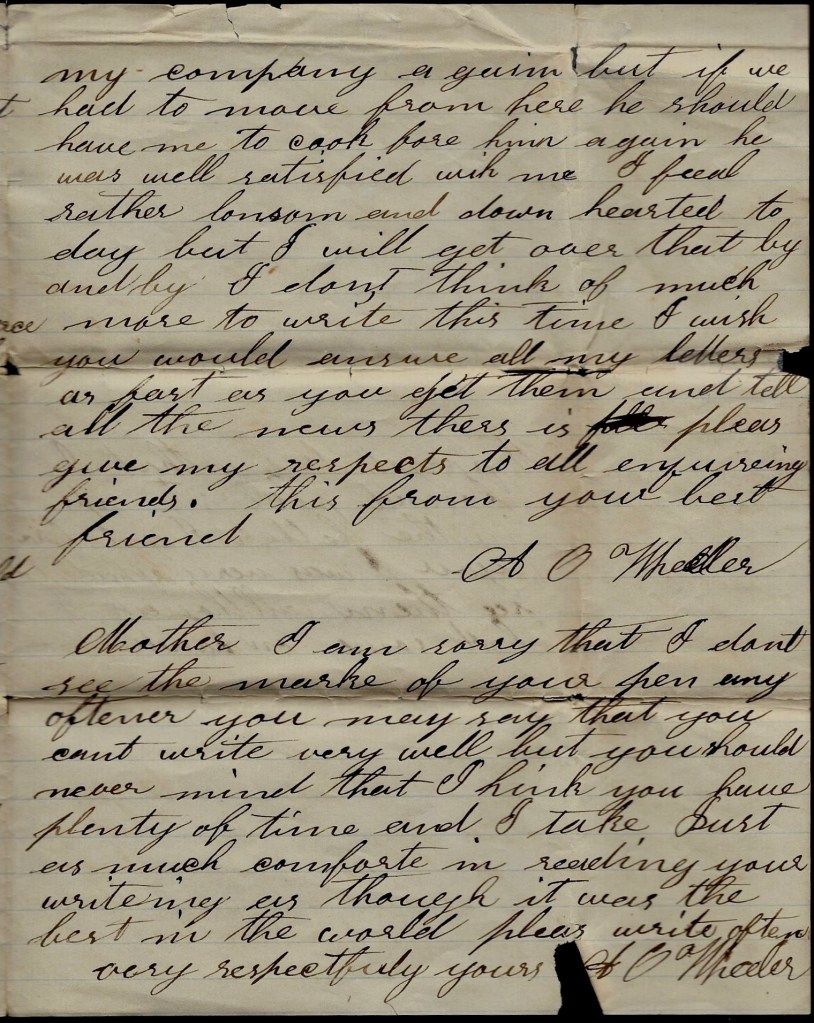 my company again but if we
had to move from here he should
have me to cook fore him again he
was well satisfied wih me I feeal
rather lonsom and down hearted to
day but I will get over that by
and by I dont think of much
more to write this time I wish
you would ansure all my letters
as fast as you get them and tell
all the news thers is pleas
give my respects to all enquireing
friends. this from your best
friend
A O Wheeler
Mother I am sorry that I dont
see the marke of your pen any
oftener you may say that you
cant write very well but you should
never mind that I hink you have
plenty of time and I take Just
as much comforte in reading your
writeing as though it was the
best in the world pleas write often
very respectfuly yours A O Wheeler